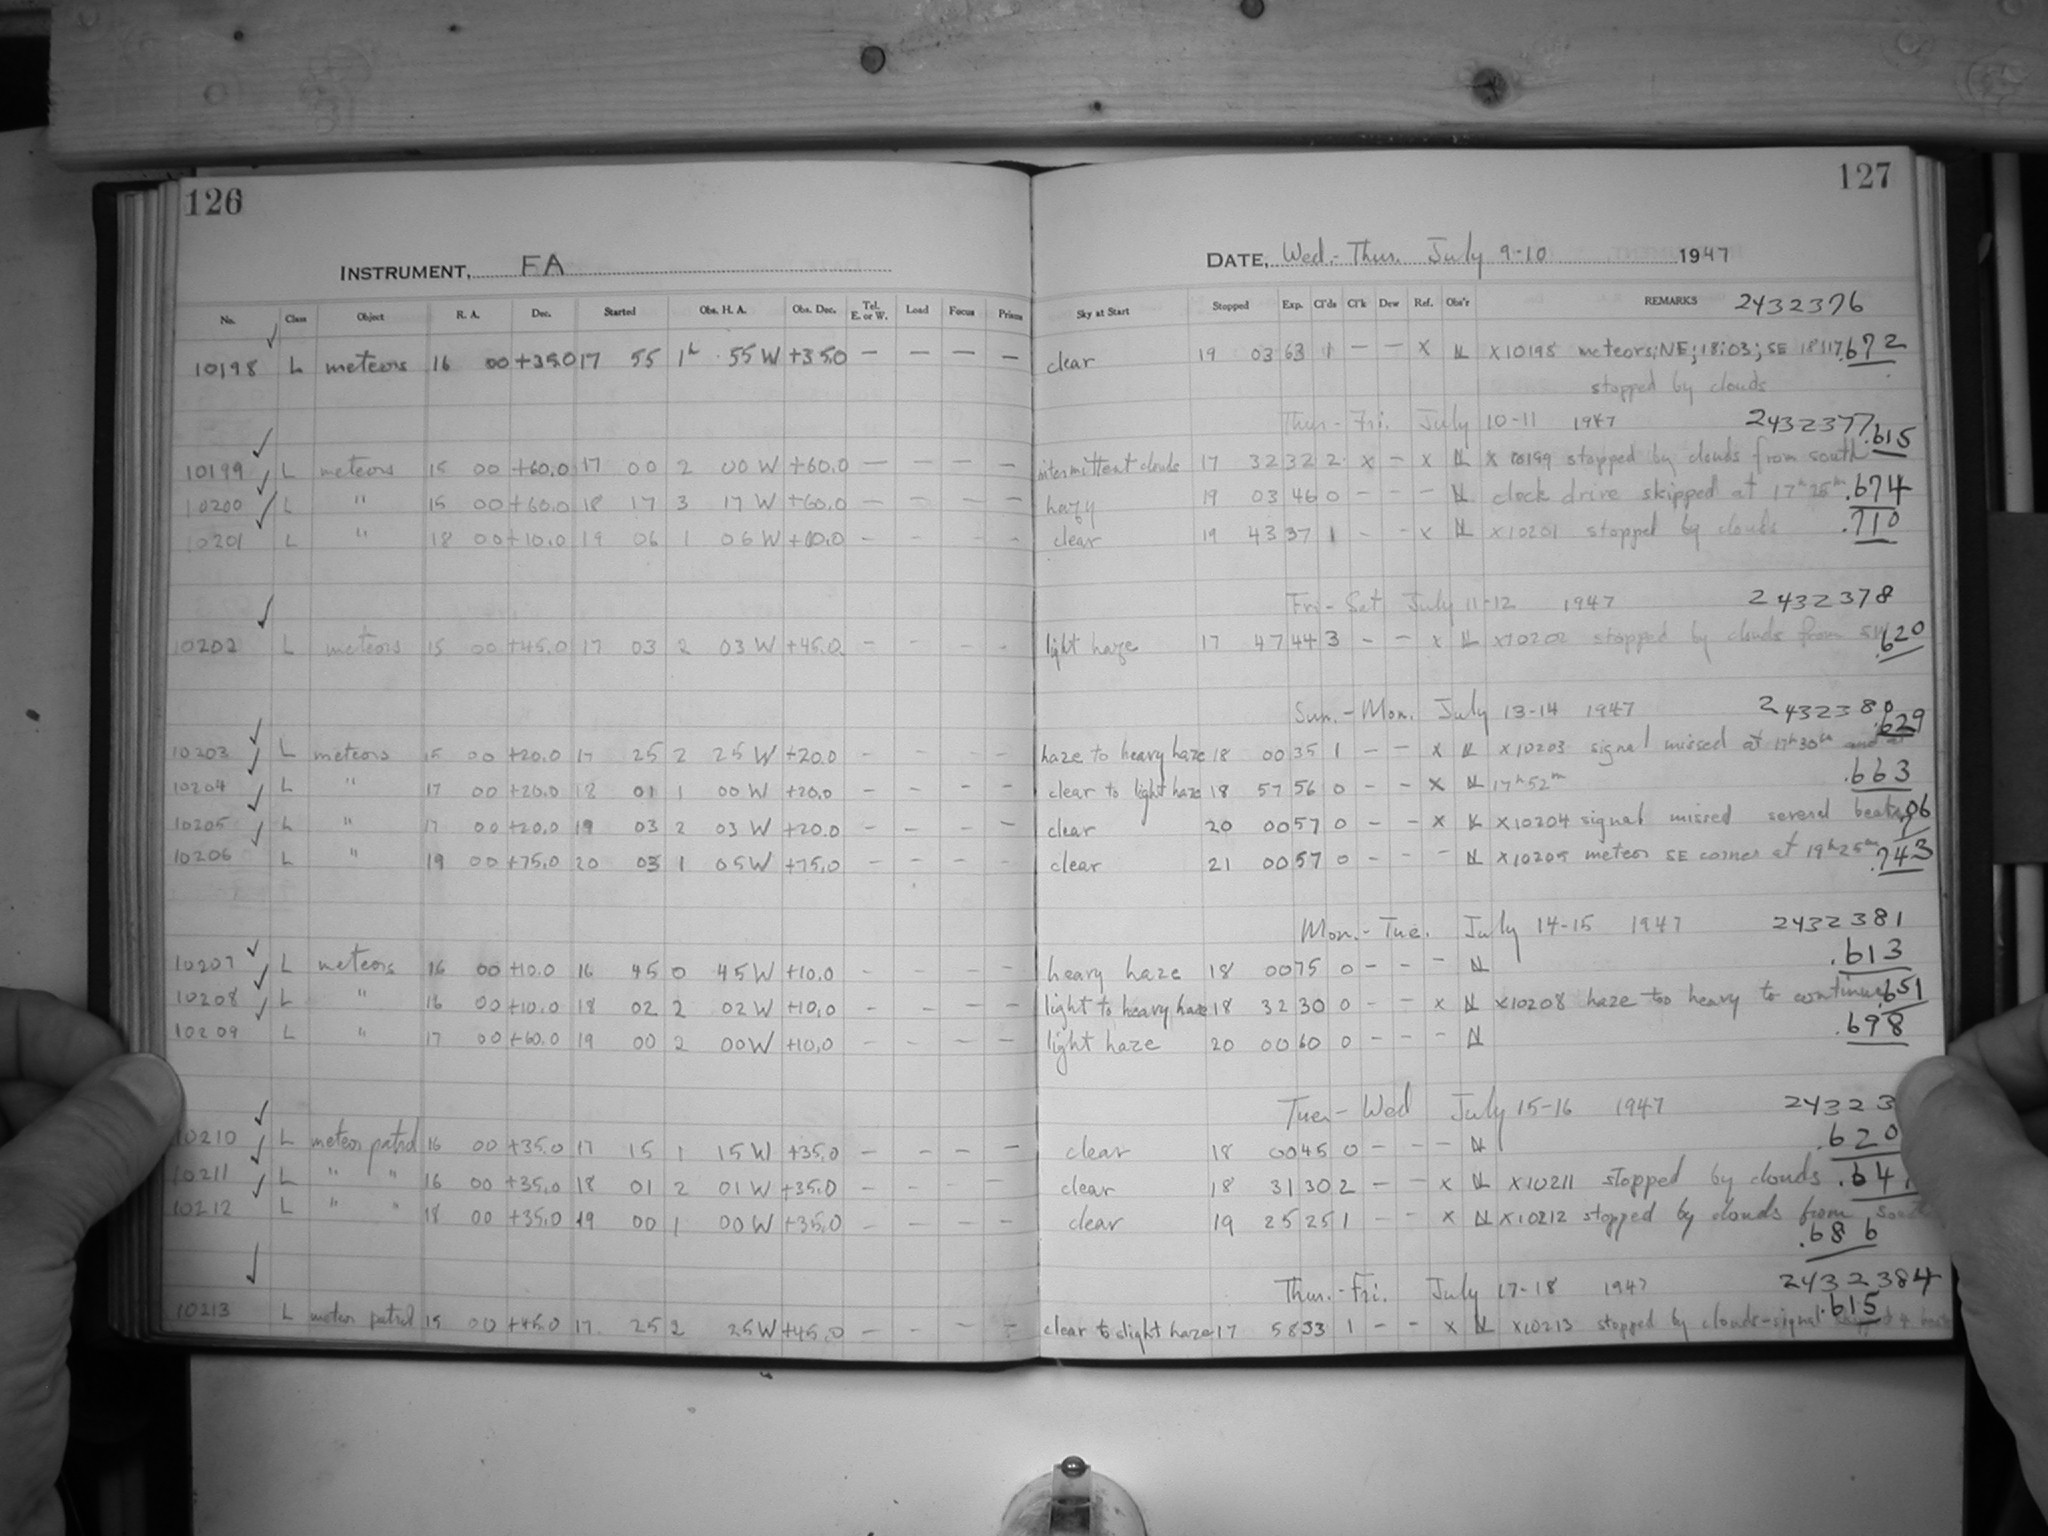 126
INSTRUMENT, FA
No. Class Object R. A. Dec. Started Obs. H. A. Obs. Dec. Tel. E. or W. Load Focus Prisms
10198 L meteors 16 00 +35.0 17 55 1h 55 W +35.0 — — — —
10199 L meteors 15 00 +60.0 17 00 2 00 W +60.0 — — — —
10200 L " 15 00 +60.0 18 17 3 17 W +60.0 — — — —
10201 L " 18 00 +10.0 19 06 1 06 W +10.0 — — — —
10202 L meteors 15 00 +45.0 17 03 2 03 W +45.0 — — —
10203 L meteors 15 00 +20.0 17 25 2 25 W +20.0 — — — —
10204 L " 17 00 +20.0 18 01 1 00 W +20.0 — — — —
10205 L " 17 00 +20.0 19 03 2 03 W +20.0 — — — —
10206 L " 19 00 +75.0 20 03 1 05 W +75.0 — — — —
10207 L meteors 16 00 +10.0 16 45 0 45 W +10.0 — — — —
10208 L " 16 00 +10.0 18 02 2 02 W +10.0 — — — —
10209 L " 17 00 +60.0 19 00 2 00 W +10.0 — — — —
10210 L meteor patrol 16 00 +35.0 17 15 1 15 W +35.0 — — — —
10211 L " " 16 00 +35.0 18 01 2 01 W +35.0 — — — —
10212 L " " 18 00 +35.0 19 00 1 00 W +35.0 — — — —
10213 L meteor patrol 15 00 +45.0 17 25 2 25 W +45.0 — — — —
127
DATE, Wed.- Thur. July 9-10 1947
Sky at Start Stopped Exp. Cl'ds Cl'k Dew Ref. Obs'r REMARKS 2432376
clear 19 03 63 1 — — x N x10195 meteors; NE; 18:03; SE 18:17 .672
stopped by clouds
Thur - Fri. July 10-11 1947 2432377
.615
intermittent clouds 17 32 32 2 x — x N x 10199 stopped by clouds from south
hazy 19 03 46 0 — — — N clock drive skipped at 17h25m .674
clear 19 43 37 1 — — x N x10201 stopped by clouds .710
Fri - Sat July 11-12 1947 2432378
light haze 17 47 44 3 — — x N x10202 stopped by clouds from SW .620
Sun. - Mon. July 13-14 1947 2432380
.629
haze to heavy haze 18 00 35 1 — — x N x10203 signal missed at 17h30m and at
clear to light haze 18 57 56 0 — — x N 17h52m .663
clear 20 00 57 0 — — x N x10204 signal missed several beats .706
clear 21 00 57 0 — — — N x10205 meteor SE corner at 19h25m .743
Mon. - Tue. July 14-15 1947 2432381
heavy haze 18 00 75 0 — — — N .613
light to heavy haze 18 32 30 0 — — x N x10208 haze too heavy to continue .651
light haze 20 00 60 0 — — — N .698
Tue - Wed July 15-16 1947 24323
clear 18 00 45 0 — — — N .620
clear 18 31 30 2 — — x N x10211 stopped by clouds .64
clear 19 25 25 1 — — x N x10212 stopped by clouds from south
.686
Thur. - Fri. July 17-18 1947 2432384
.615
clear to slight haze 17 58 33 1 — — x N x10213 stopped by clouds-signal